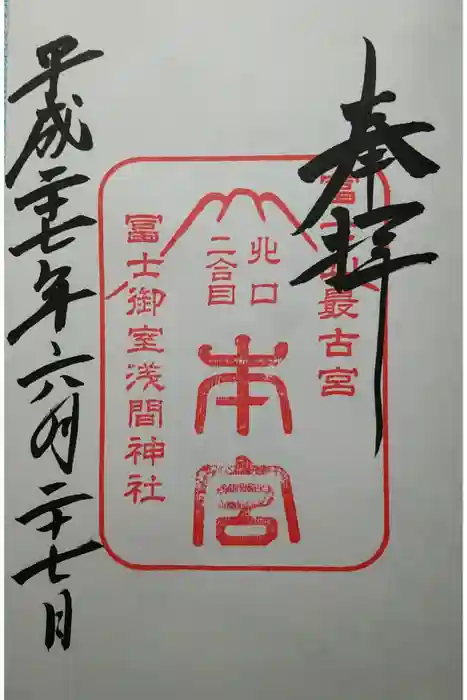 奉拝
冨士山最古宮
北口
二合目
本宮
冨士御室浅間神社
平成二十七年六月二十七日